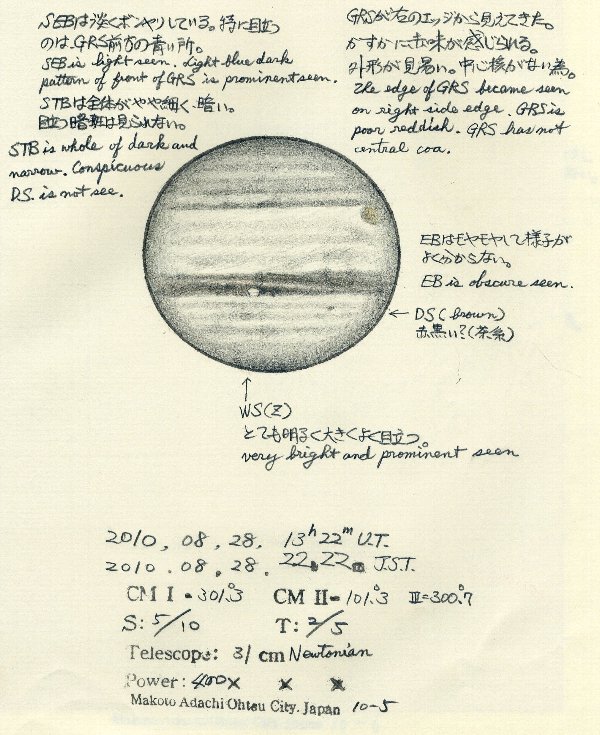 SEBは淡くボンヤリしている。特に目立つ
のは、GRS前方の青い所。
SEB is light seen. Light blue dark
pattern of front of GRS is prominent seen.
STBは全体がやや細く、暗い。
目立つ暗斑は見られない。
STB is whole of dark and
narrow. Conspicuous
D.S. is not see.
GRSが右のエッジから見えてきた。
かすかに赤味が感じられる。
外形が見易い。中心核がない為。
The edge of GRS became seen
on right side edge. GRS is
poor reddish. GRS has not
central coa.
EBはモヤモヤして様子が
よく分からない。
EB is obscure seen.
← DS(brown)
赤黒い?(茶系)
↑
WS(Z)
とても明るく大きくよく目立つ。
very bright and prominent seen
2010, 08, 28, 13h22m U.T.
2010. 08. 28. 22.22. J.S.T.
CM I = 301.°3 CM II = 101.°3 III=300.°7
S: 5/10 T: 2/5
Telescope: 31 cm Newtonian
Power: 400× × ×
Makoto Adachi Ohtsu City. Japan 10-5